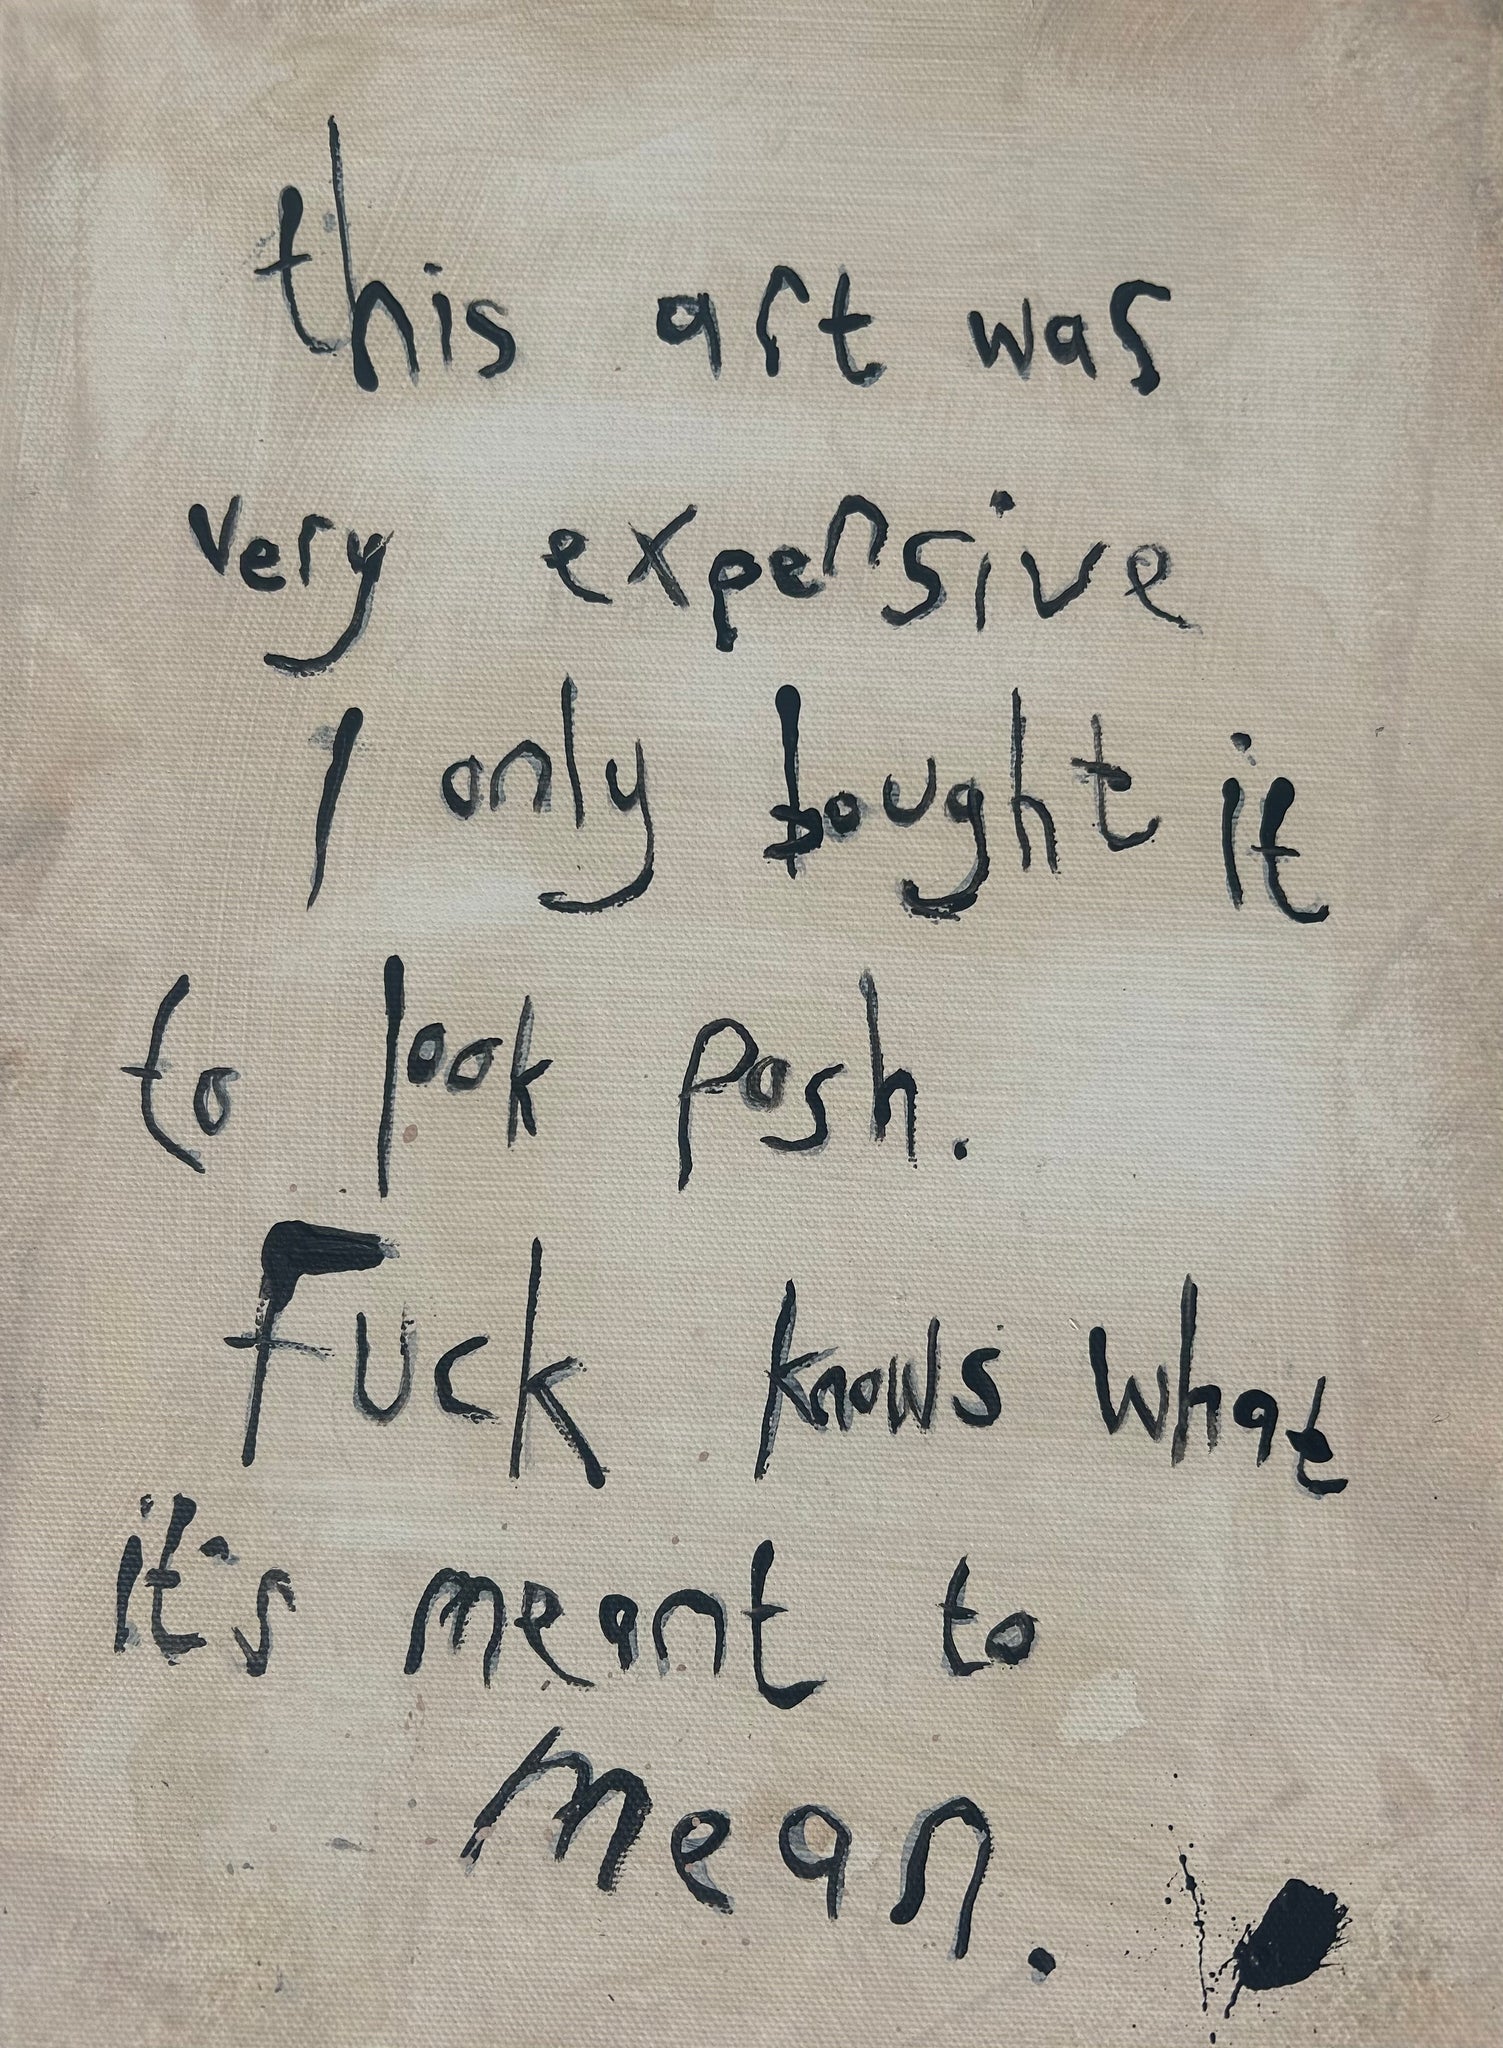 this art was
very expensive
I only bought it
to look posh.
Fuck knows what
it's meant to
mean.